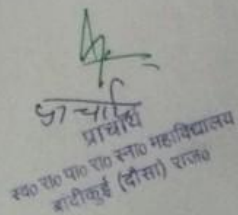 प्राचार्य
प्राचार्य
स्व० रा० पा० रा० स्ना० महाविद्यालय
बांदीकुई (दौसा) राज०